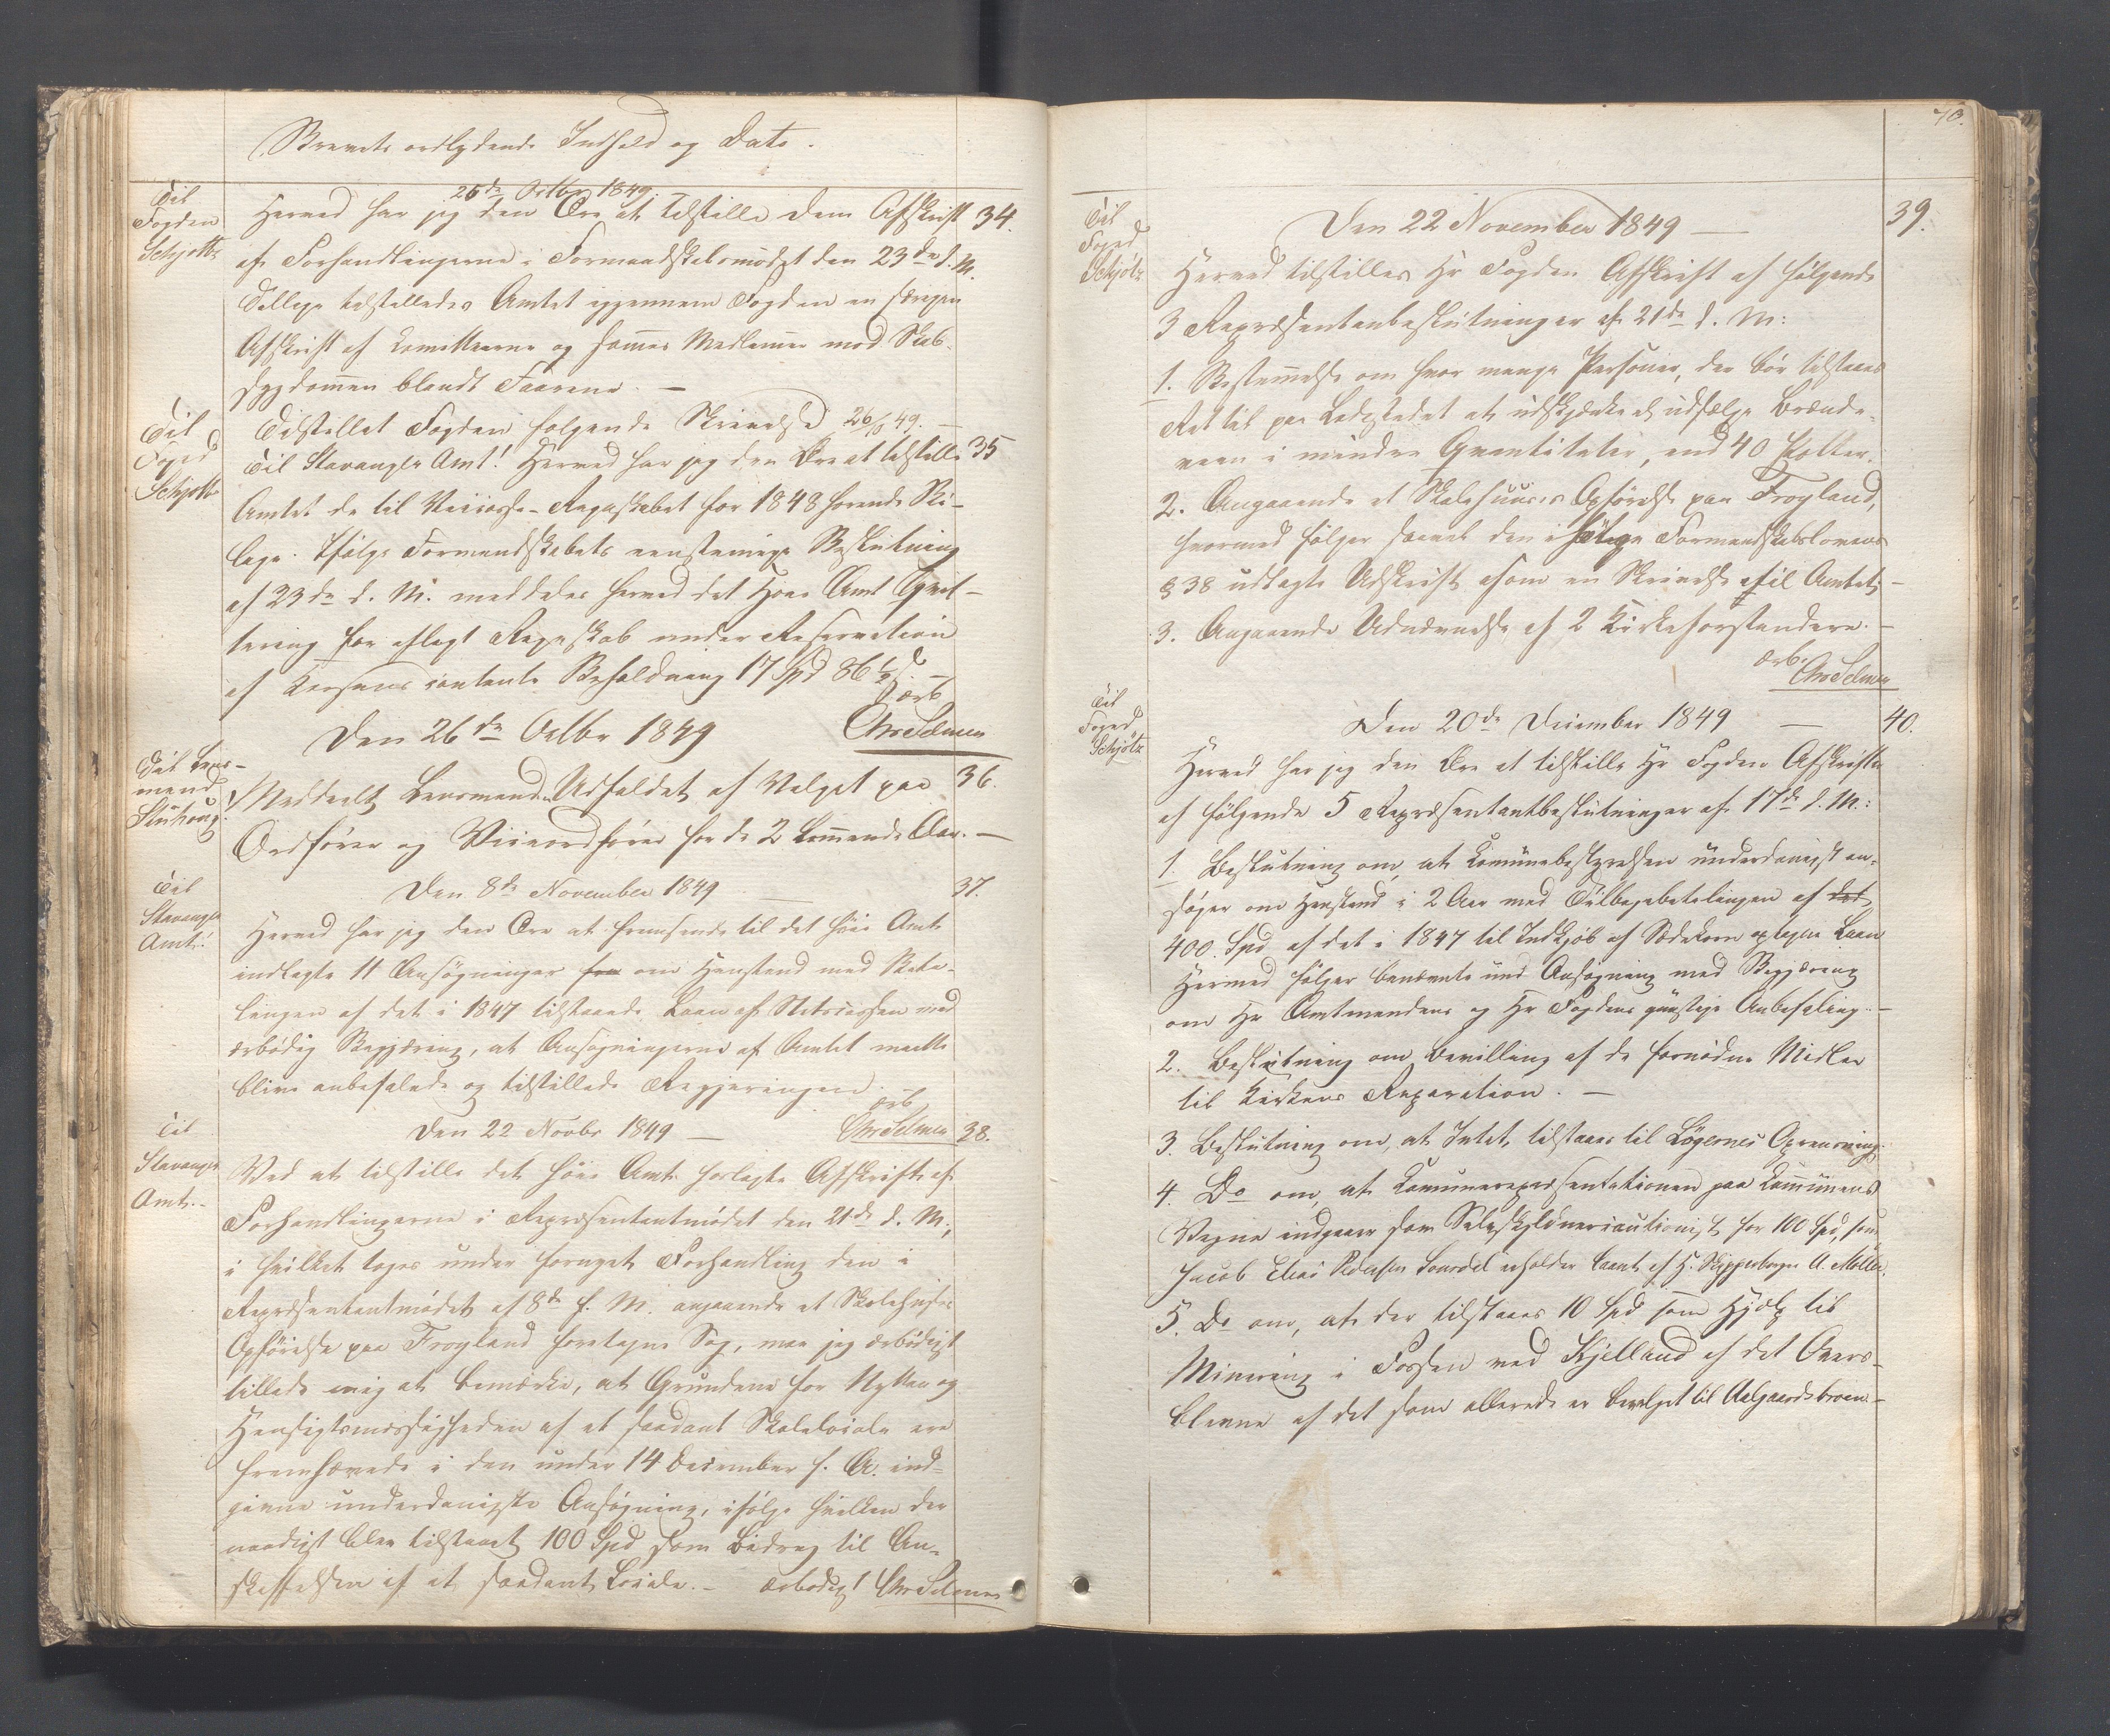 Brevets ordlydende Indhold og Dato.
Til
Fogden
Schjøtts
26de Octbr 1849.
Herved har jeg den Ære at tilstille Dem Afskrift 34.
af Forhandlingerne i Formandskabsmødet den 23de d. M.
Tillige tilstilledes Amtet igjennem Fogden en særegen
Afskrift af Komitteerne og sammes Medlemmer mod Skab-
sygdommen blandt Faarene. —
Til
Foged
Schjøtt
Tilstillet Fogden følgende Skrivelse 26/10 49. —
Til Stavanger Amt! Herved har jeg den Ære at tilstille 35
Amtet de til Veicasse-Regnskabet for 1848 hørende Bi-
lage. Ifølge Formandskabets eenstemmige Beslutning
af 23de d. M. meddeles herved det Høie Amt Qvit-
tering for aflagt Regnskab under Reservation
af Kassens contante Beholdning 17 Spd 86½ s. —
ærb.
Chr Selmer
Den 26de Octbr 1849
Til Lens-
mand
Stuhoug.
Meddeelt Lensmanden Udfaldet af Valget paa 36.
Ordfører og Viceordfører for de 2 kommende Aar. —
Til
Stavanger
Amt!
Den 8de November 1849 — 37.
Herved har jeg den Ære at fremsende til det høie Amt
indlagte 11 Ansøgninger fra om Henstand med Beta-
lingen af det i 1847 tilstaaede Laan af Statscassen med
ærbødig Begjæring, at Ansøgningerne af Amtet maatte
blive anbefalede og tilstillede Regjeringen.
ærb
Chr Selmer
Til
Stavanger
Amt.-
Den 22 Novbr 1849 — 38.
Ved at tilstille det høie Amt hoslagte Afskrift af
Forhandlingerne i Repræsentantmødet den 21de d. M.,
i hvilket toges under fornyet Forhandling den i
Repræsentantmødet af 8de f. M. angaaende et Skolehuses
Opførelse paa Frøyland foretagne Sag, maa jeg ærbødigst
tillade mig at bemærke, at Grundene for Nytten og
Hensigtsmæssigheden af et saadant Skolelocale ere
fremhævede i den under 14 December f. A. ind-
givne underdanigste Ansøgning, ifølge hvilken der
naadigst blev tilstaaet 100 Spd som Bidrag til An-
skaffelsen af et saadant Locale. — ærbødigst Chr Selmer
70.
Til
Foged
Schjøtz
Den 22 November 1849 — 39.
Herved tilstilles Hr Fogden Afskrift af følgende
3 Repræsentantbeslutninger af 21de d. M:
1. Bestemmelse om hvor mange Personer, der bør tilstaaes
Ret til paa Ladestedet at udskjænke el udsælge Brænde-
viin i mindre Qvantiteter, end 40 Potter.
2. Angaaende et Skolehuuses Opførelse paa Frøyland,
hvormed følger saavel den i Følge Formandskabslovens
§ 38 udtagte Udskrift som en Skrivelse til Amtet. —
3. Angaaende Udnævnelse af 2 Kirkeforstandere. —
ærb.
Chr Selmer
Til
Foged
Schjøtz
Den 20de December 1849 — 40.
Herved har jeg den Ære at tilstille Hr Fogden Afskrifter
af følgende 5 Repræsentantbeslutninger af 17de d. M.:
1. Beslutning om, at Komunebestyrelsen underdanigst an-
søger om Henstand i 2 Aar med Tilbagebetalingen af det
400 Spd af det i 1847 til Indkjøb af Sædekorn optagne Laan
Hermed følger benævnte und Ansøgning med Begjæring
om Hr Amtmandens og Hr Fogdens gunstige Anbefaling. —
2. Beslutning om Bevilling af de fornødne Midler
til Kirkens Reparation. —
3. Beslutning om, at Intet tilstaaes til Løgernes Oprensning.
4. Do om, at Komunerepræsentationen paa Kommunens
Vegne indgaaer som Selvskyldnercautionist for 100 Spd, som
Jacob Elias Pedersen erholder laant af H. Skipperborger A. Møller.
5. Do om, at der tilstaaes 10 Spd som Hjælp til
Minering i Fossen ved Skjelland af det Overs-
blevne af det som allerede er bevilget til Aalgaardsbroen. —